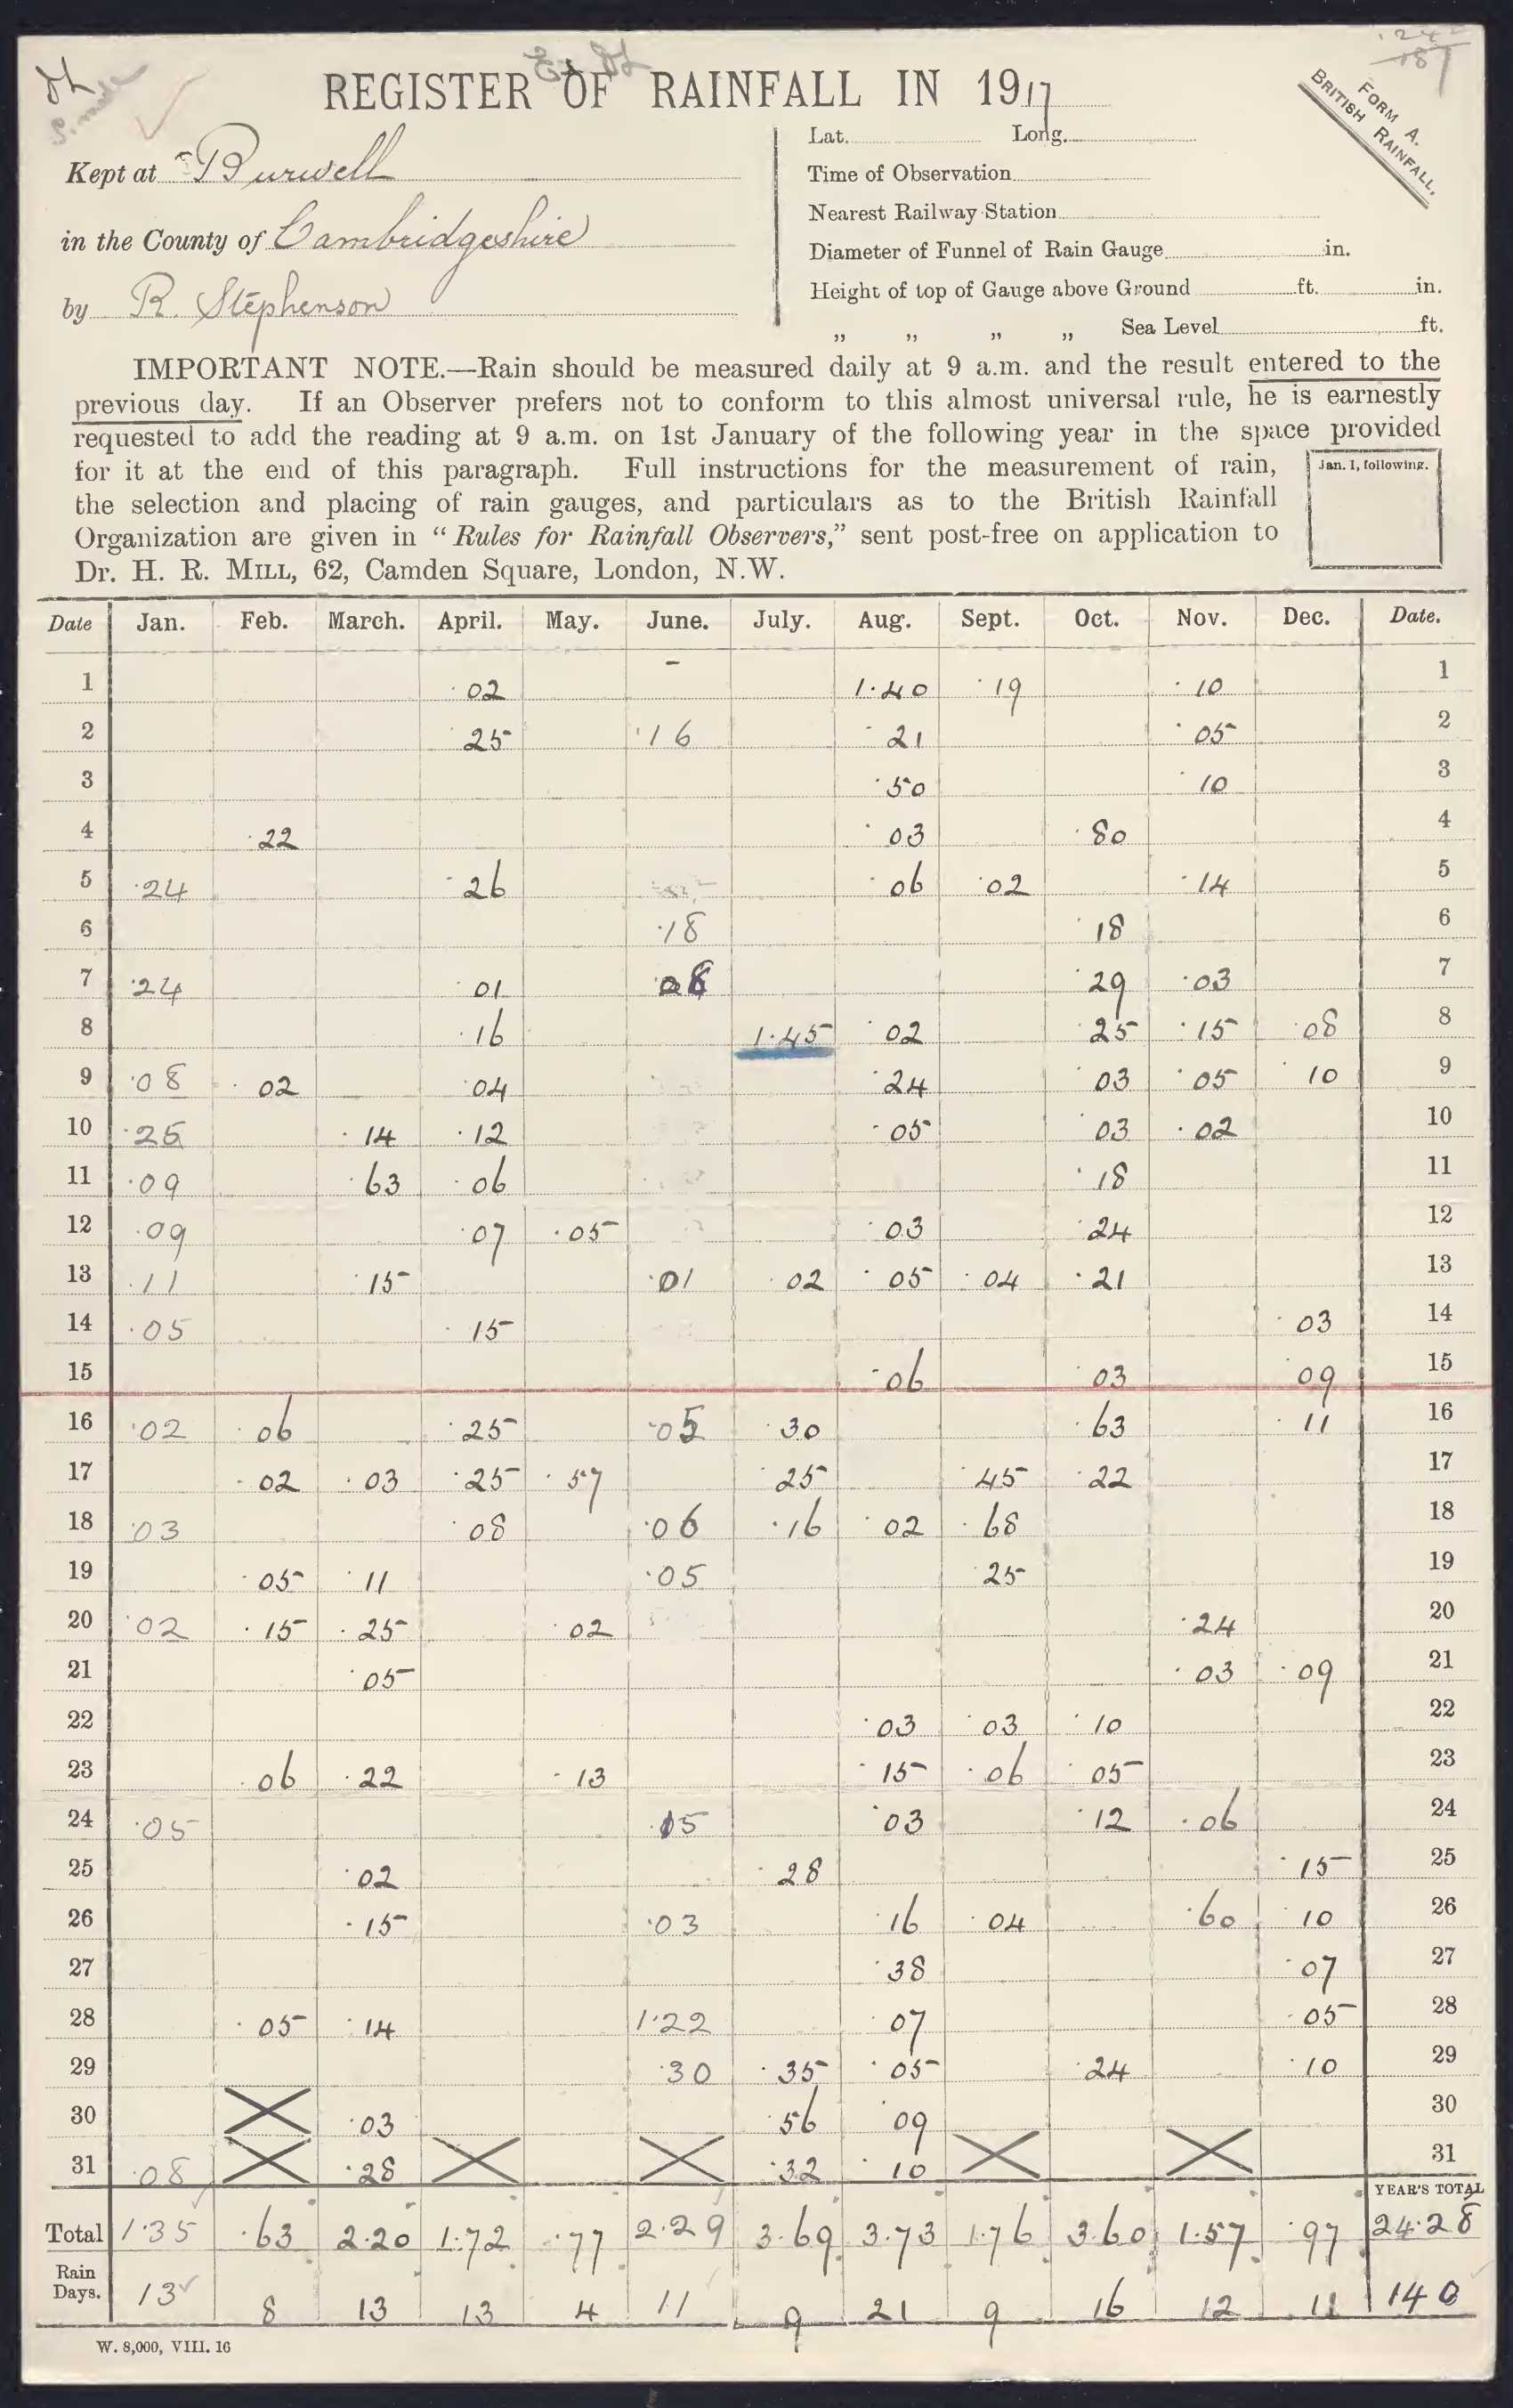 REGISTER OF RAINFALL IN 1917
FORM A.
BRITISH RAINFALL.
Kept at Burwell
in the County of Cambridgeshire
by R. Stephenson
Lat. Long.
Time of Observation
Nearest Railway Station
Diameter of Funnel of Rain Gauge in.
Height of top of Gauge above Ground ft. in.
" " " " Sea Level ft.
IMPORTANT NOTE.—Rain should be measured daily at 9 a.m. and the result entered to the
previous day. If an Observer prefers not to conform to this almost universal rule, he is earnestly
requested to add the reading at 9 a.m. on 1st January of the following year in the space provided
for it at the end of this paragraph. Full instructions for the measurement of rain,
the selection and placing of rain gauges, and particulars as to the British Rainfall
Organization are given in "Rules for Rainfall Observers," sent post-free on application to
Dr. H. R. MILL, 62, Camden Square, London, N.W.
Jan. 1, following.
Date Jan. Feb. March. April. May. June. July. Aug. Sept. Oct. Nov. Dec. Date.
1 .02 - 1.40 .19 .10 1
2 .25 .16 .21 .05 2
3 .50 .10 3
4 .22 .03 .80 4
5 .24 .26 .06 .02 .14 5
6 .18 .18 6
7 .24 .01 .08 .29 .03 7
8 .16 1.45 .02 .25 .15 .08 8
9 .08 .02 .04 .24 .03 .05 .10 9
10 .25 .14 .12 .05 .03 .02 10
11 .09 .63 .06 .18 11
12 .09 .07 .05 .03 .24 12
13 .11 .15 .01 .02 .05 .04 .21 13
14 .05 .15 .03 14
15 .06 .03 .09 15
16 .02 .06 .25 .05 .30 .63 .11 16
17 .02 .03 .25 .57 .25 .45 .22 17
18 .03 .08 .06 .16 .02 .68 18
19 .05 .11 .05 .25 19
20 .02 .15 .25 .02 .24 20
21 .05 .03 .09 21
22 .03 .03 .10 22
23 .06 .22 .13 .15 .06 .05 23
24 .05 .15 .03 .12 .06 24
25 .02 .28 .15 25
26 .15 .03 .16 .04 .60 .10 26
27 .38 .07 27
28 .05 .14 1.22 .07 .05 28
29 .30 .35 .05 .24 .10 29
30 .03 .56 .09 30
31 .08 .28 .32 .10 31
YEAR'S TOTAL
Total 1.35 .63 2.20 1.72 .77 2.29 3.69 3.73 1.76 3.60 1.57 .97 24.28
Rain
Days. 13 8 13 13 4 11 9 21 9 16 12 11 140
W. 8,000, VIII. 16